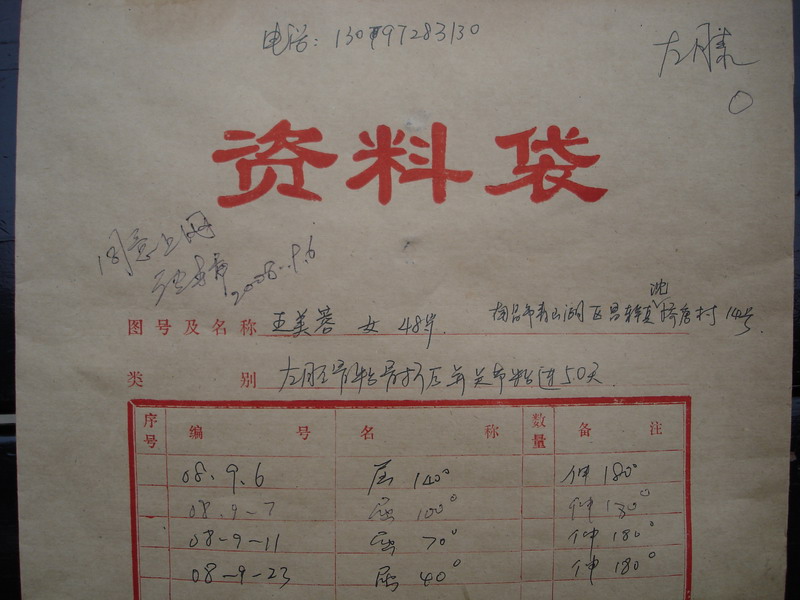 电话: 13097283130
左膝
资料袋
同意上网
2008.9.6
图号及名称 王美蓉 女 48岁 南昌市青山湖区昌东镇沈桥唐村 14号
类别 左胫骨骨折后并关节粘连50天
序号 编号 名称 数量 备注
08.9.6 屈 140° 伸 180°
08.9-7 屈 100° 伸 130°
08-9-11 屈 70° 伸 180°
08-9-23 屈 40° 伸 180°